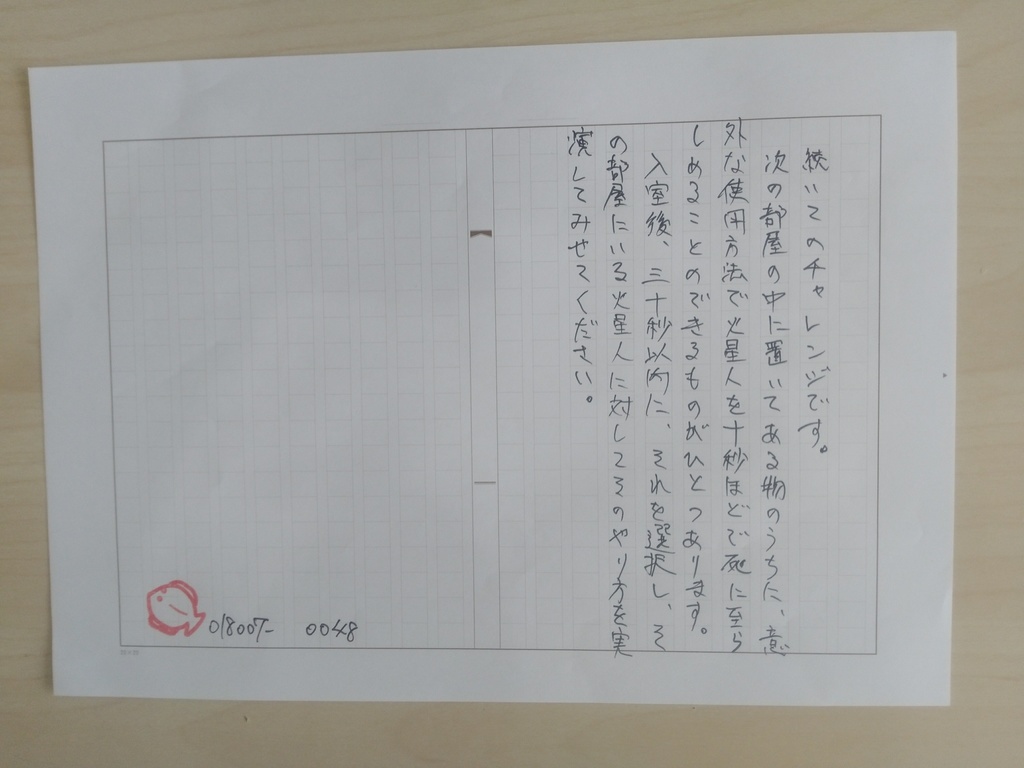 続いてのチャレンジです。
次の部屋の中に置いてある物のうちに、意
外な使用方法で火星人を十秒ほどで死に至ら
しめることのできるものがひとつあります。
入室後、三十秒以内に、それを選択し、そ
の部屋にいる火星人に対してそのやり方を実
演してみせてください。
018007- 0048